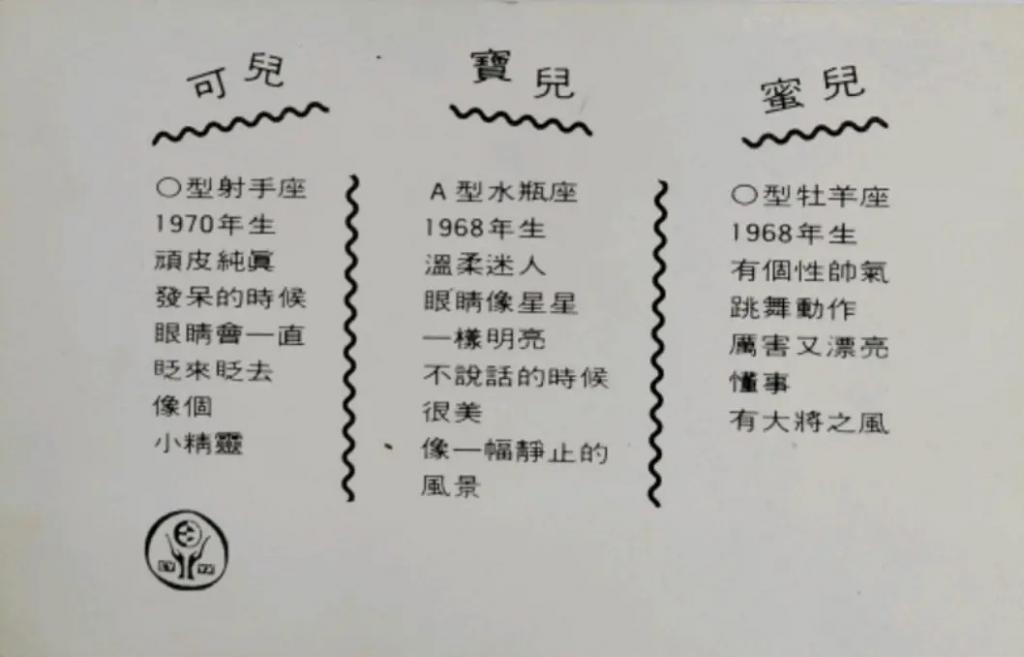 可兒
○型射手座
1970年生
頑皮純眞
發呆的時候
眼睛會一直
眨來眨去
像個
小精靈
寶兒
A型水瓶座
1968年生
溫柔迷人
眼睛像星星
一樣明亮
不說話的時候
很美
像一幅靜止的
風景
蜜兒
○型牡羊座
1968年生
有個性帥氣
跳舞動作
厲害又漂亮
懂事
有大將之風